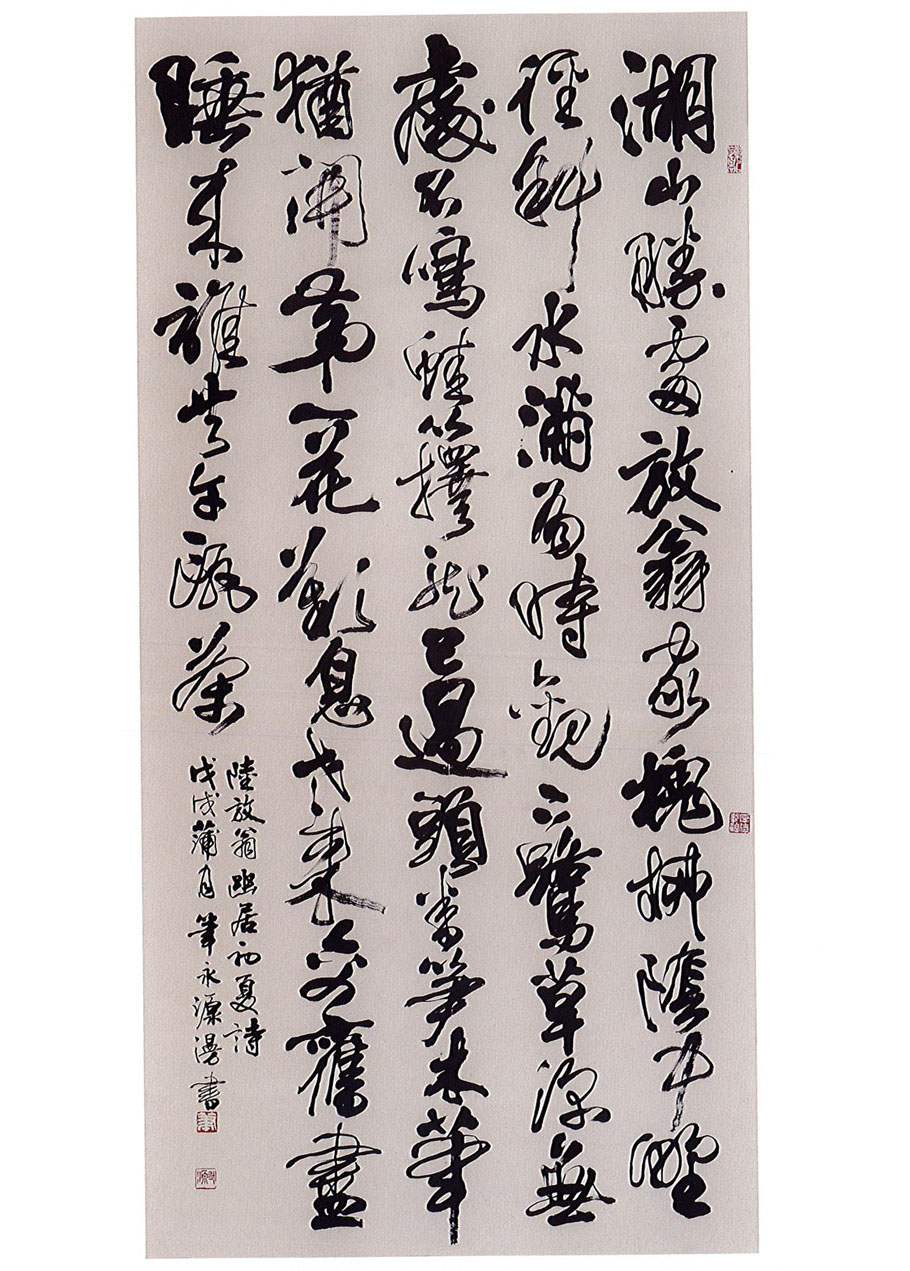 湖山勝處放翁家槐柳陰中野
徑斜水滿有時觀下鷺草深無
處不鳴蛙籜龍已過頭番笋木筆
猶開第一花歎息老來交舊盡
睡來誰共午甌茶
陸放翁幽居初夏詩
戊戌蒲月永源漫書